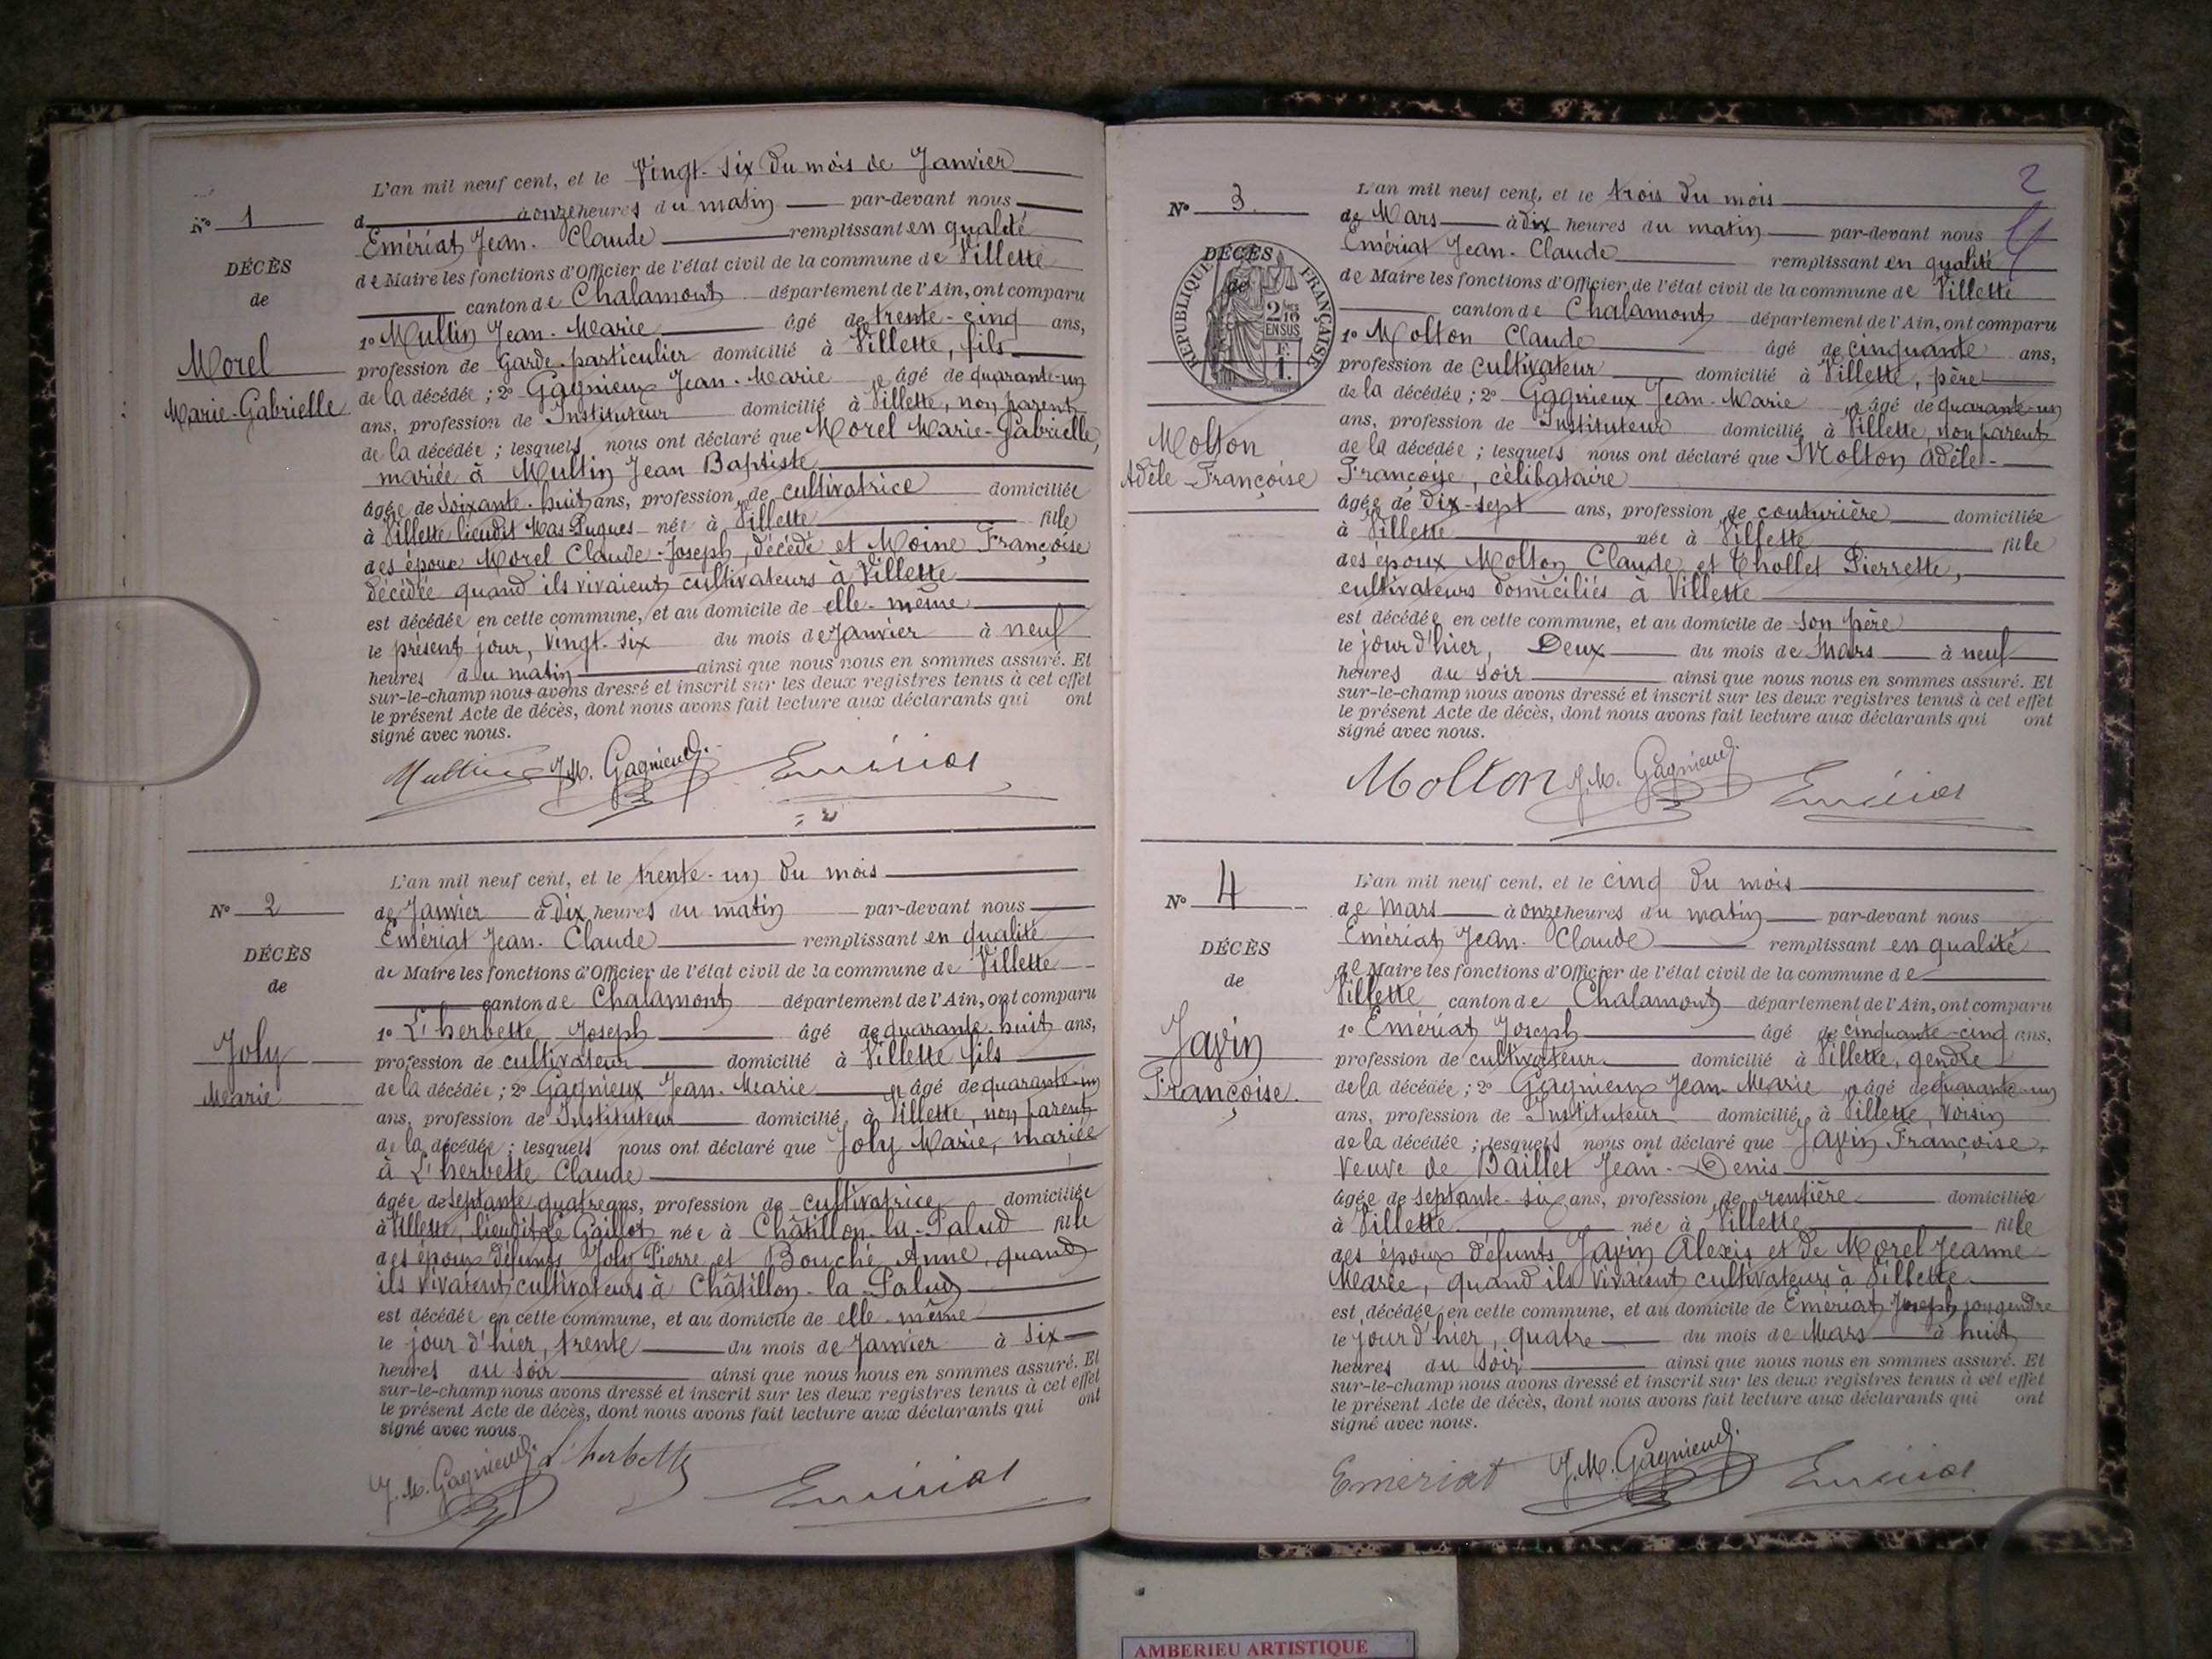 L'an mil neuf cent, et le Vingt-six du mois de Janvier
N° 1
d à onze heures du matin par-devant nous
Emériat Jean-Claude remplissant en qualité
DÉCÈS
de Maire les fonctions d'Officier de l'état civil de la commune de Villette
de
canton de Chalamont département de l'Ain, ont comparu
1° Multin Jean-Marie âgé de trente-cinq ans,
Morel
profession de Garde-particulier domicilié à Villette, fils
Marie-Gabrielle
de la décédée ; 2° Gagnieux Jean-Marie et âgé de quarante-un
ans, profession de Instituteur domicilié à Villette, non parent
de la décédée ; lesquels nous ont déclaré que Morel Marie-Gabrielle,
mariée à Multin Jean Baptiste
âgée de soixante-huit ans, profession de cultivatrice domiciliée
à Villette lieudit Mas-Pugues née à Villette fille
des époux Morel Claude-Joseph, décédé et Moine Françoise
décédée quand ils vivaient cultivateurs à Villette
est décédée en cette commune, et au domicile de elle-même
le présent jour, vingt-six du mois de Janvier à neuf
heures du matin ainsi que nous nous en sommes assuré. Et
sur-le-champ nous avons dressé et inscrit sur les deux registres tenus à cet effet
le présent Acte de décès, dont nous avons fait lecture aux déclarants qui ont
signé avec nous.
Multin J.M. Gagnieux Emériat
L'an mil neuf cent, et le trente-un du mois
N° 2
de Janvier à dix heures du matin par-devant nous
Emériat Jean-Claude remplissant en qualité
DÉCÈS
de Maire les fonctions d'Officier de l'état civil de la commune de Villette
de
canton de Chalamont département de l'Ain, ont comparu
1° L'herbette Joseph âgé de quarante-huit ans,
Joly
profession de cultivateur domicilié à Villette fils
Marie
de la décédée ; 2° Gagnieux Jean-Marie et âgé de quarante-un
ans, profession de Instituteur domicilié à Villette, non parent
de la décédée ; lesquels nous ont déclaré que Joly Marie, mariée
à L'herbette Claude
âgée de septante quatre ans, profession de cultivatrice domiciliée
à Villette, lieudit Le Gaillot née à Châtillon-la-Palud fille
des époux défunts Joly Pierre et Bouché Anne, quand
ils vivaient cultivateurs à Châtillon-la-Palud
est décédée en cette commune, et au domicile de elle-même
le jour d'hier, trente du mois de Janvier à six
heures du soir ainsi que nous nous en sommes assuré. Et
sur-le-champ nous avons dressé et inscrit sur les deux registres tenus à cet effet
le présent Acte de décès, dont nous avons fait lecture aux déclarants qui ont
signé avec nous.
J.M. Gagnieux L'herbette Emériat
2
L'an mil neuf cent, et le trois du mois
N° 3
de Mars à dix heures du matin par-devant nous
Emériat Jean-Claude remplissant en qualité
DÉCÈS
de
RÉPUBLIQUE FRANÇAISE
2/10 EN SUS
F. 1
de Maire les fonctions d'Officier de l'état civil de la commune de Villette
canton de Chalamont département de l'Ain, ont comparu
1° Molton Claude âgé de cinquante ans,
profession de cultivateur domicilié à Villette, père
de la décédée ; 2° Gagnieux Jean-Marie et âgé de quarante-un
ans, profession de Instituteur domicilié à Villette, non parent
Molton
de la décédée ; lesquels nous ont déclaré que Molton Adèle-
Adèle-Françoise
Françoise, célibataire
âgée de dix-sept ans, profession de couturière domiciliée
à Villette née à Villette fille
des époux Molton Claude et Chollet Pierrette,
cultivateurs domiciliés à Villette
est décédée en cette commune, et au domicile de son père
le jour d'hier, Deux du mois de Mars à neuf
heures du soir ainsi que nous nous en sommes assuré. Et
sur-le-champ nous avons dressé et inscrit sur les deux registres tenus à cet effet
le présent Acte de décès, dont nous avons fait lecture aux déclarants qui ont
signé avec nous.
Molton J.M. Gagnieux Emériat
L'an mil neuf cent, et le cinq du mois
N° 4
de Mars à onze heures du matin par-devant nous
Emériat Jean-Claude remplissant en qualité
DÉCÈS
de Maire les fonctions d'Officier de l'état civil de la commune de
de
Villette canton de Chalamont département de l'Ain, ont comparu
1° Emériat Joseph âgé de cinquante-cinq ans,
Javin
profession de cultivateur domicilié à Villette, gendre
Françoise.
de la décédée ; 2° Gagnieux Jean-Marie et âgé de quarante-un
ans, profession de Instituteur domicilié à Villette, voisin
de la décédée ; lesquels nous ont déclaré que Javin Françoise,
veuve de Baillet Jean-Denis
âgée de septante-six ans, profession de rentière domiciliée
à Villette née à Villette fille
des époux défunts Javin Alexis et de Morel Jeanne
Marie, quand ils vivaient cultivateurs à Villette
est décédée en cette commune, et au domicile de Emériat Joseph, son gendre
le jour d'hier, quatre du mois de Mars à huit
heures du soir ainsi que nous nous en sommes assuré. Et
sur-le-champ nous avons dressé et inscrit sur les deux registres tenus à cet effet
le présent Acte de décès, dont nous avons fait lecture aux déclarants qui ont
signé avec nous.
Emériat J.M. Gagnieux Emériat
AMBERIEU ARTISTIQUE